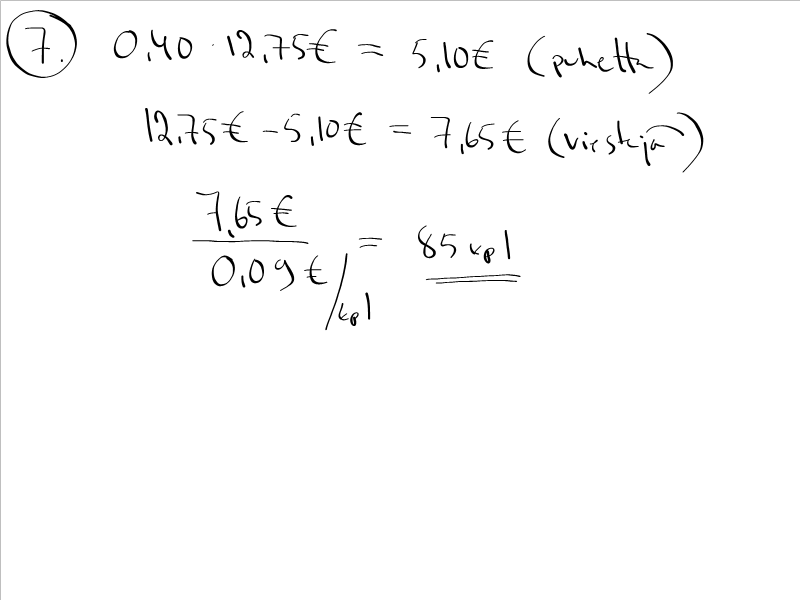 7. 0,40 · 12,75€ = 5,10€ (puhetta)
12,75€ - 5,10€ = 7,65€ (viestejä)
7,65€ / 0,09€/kpl = 85 kpl